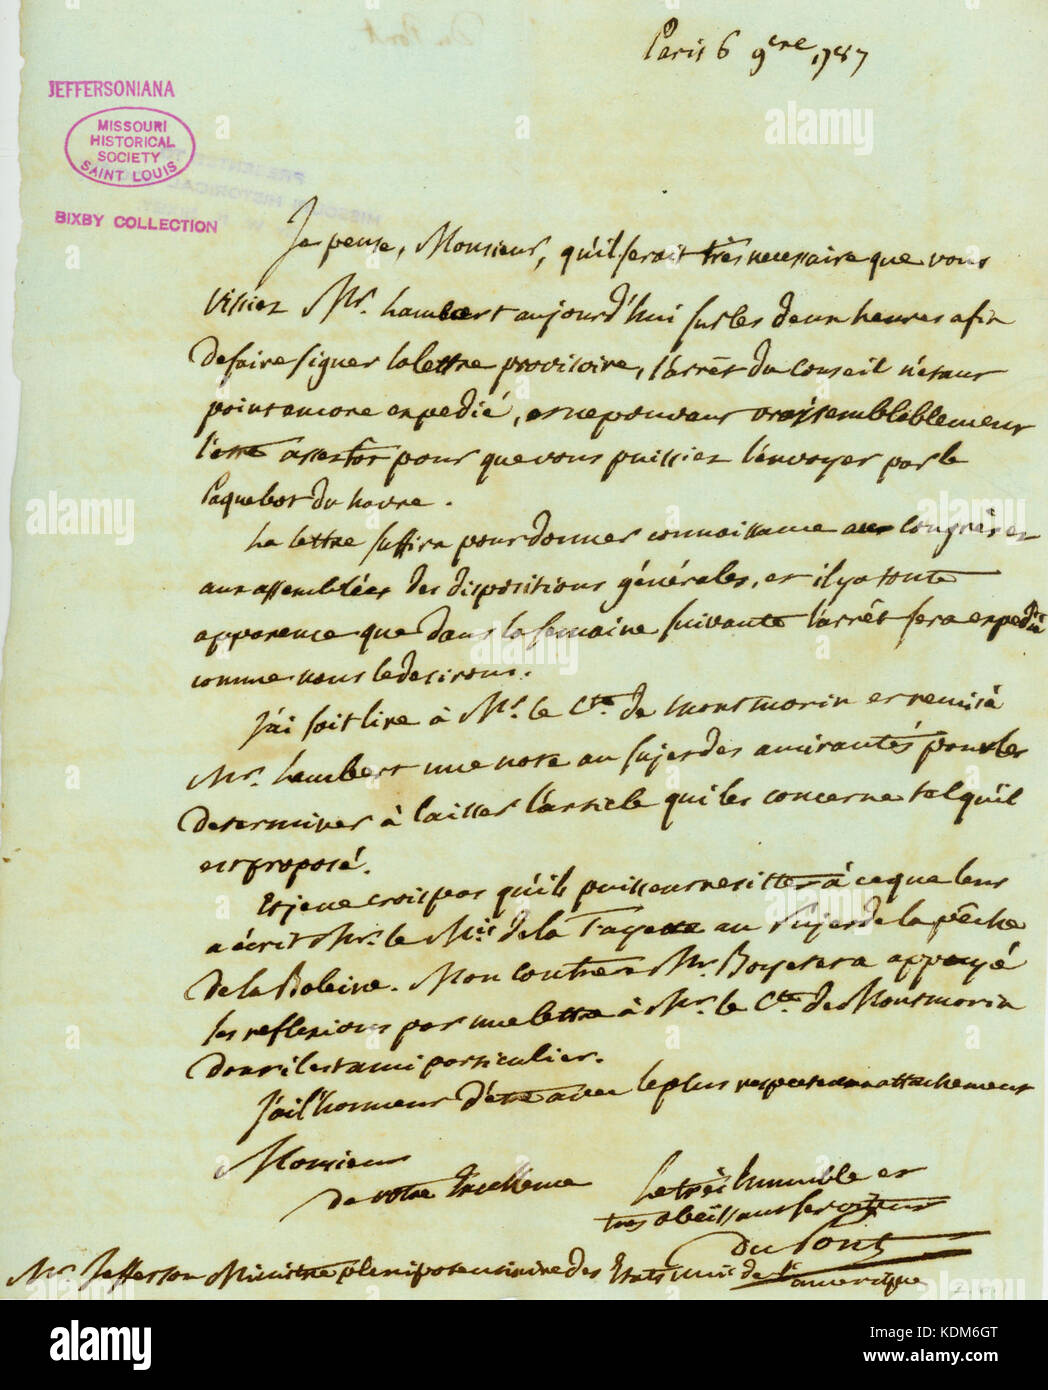 Du Pont
Paris 6 9ere 1787
JEFFERSONIANA
MISSOURI
HISTORICAL
SOCIETY
SAINT LOUIS
BIXBY COLLECTION
Je pense, Monsieur, qu'il serait très necessaire que vous
vissiez Mr. Lambert aujourd'hui sur les deux heures afin
de faire signer la lettre provisoire, l'arrêt du Conseil n'étant
point encore expedié, et ne pouvant vraisemblablement
l'etre assez tôt pour que vous puissiez l'envoyer par le
Paquebot du havre.
La lettre suffira pour donner connaissance au Congrès et
aux assemblées des dispositions générales, et il y a toute
apparence que dans la semaine suivante l'arrêt sera expedié
comme nous le desirons.
J'ai fait lire à Mr. le Cte. de Montmorin et remis à
Mr. Lambert une note au sujet des amirautés pour les
determiner à laisser l'article qui les concerne tel qu'il
est proposé.
Et je ne crois pas qu'ils puissent resister à ce que leur
a écrit Mr. le Mis de la Fayette au sujet de la pêche
de la Baleine. Mon Confrere Mr. Boyetet a appuyé
les reflexions par une lettre à Mr. le Cte. de Montmorin
dont il est ami particulier.
J'ai l'honneur d'être avec le plus respectueux attachement
Monsieur
de votre Excellence
Le très humble et
tres obéissant serviteur
Du Pont
Mr. Jefferson Ministre plenipotentiaire des Etats unis de l'amerique
alamy
a
KDM6GT
www.alamy.com